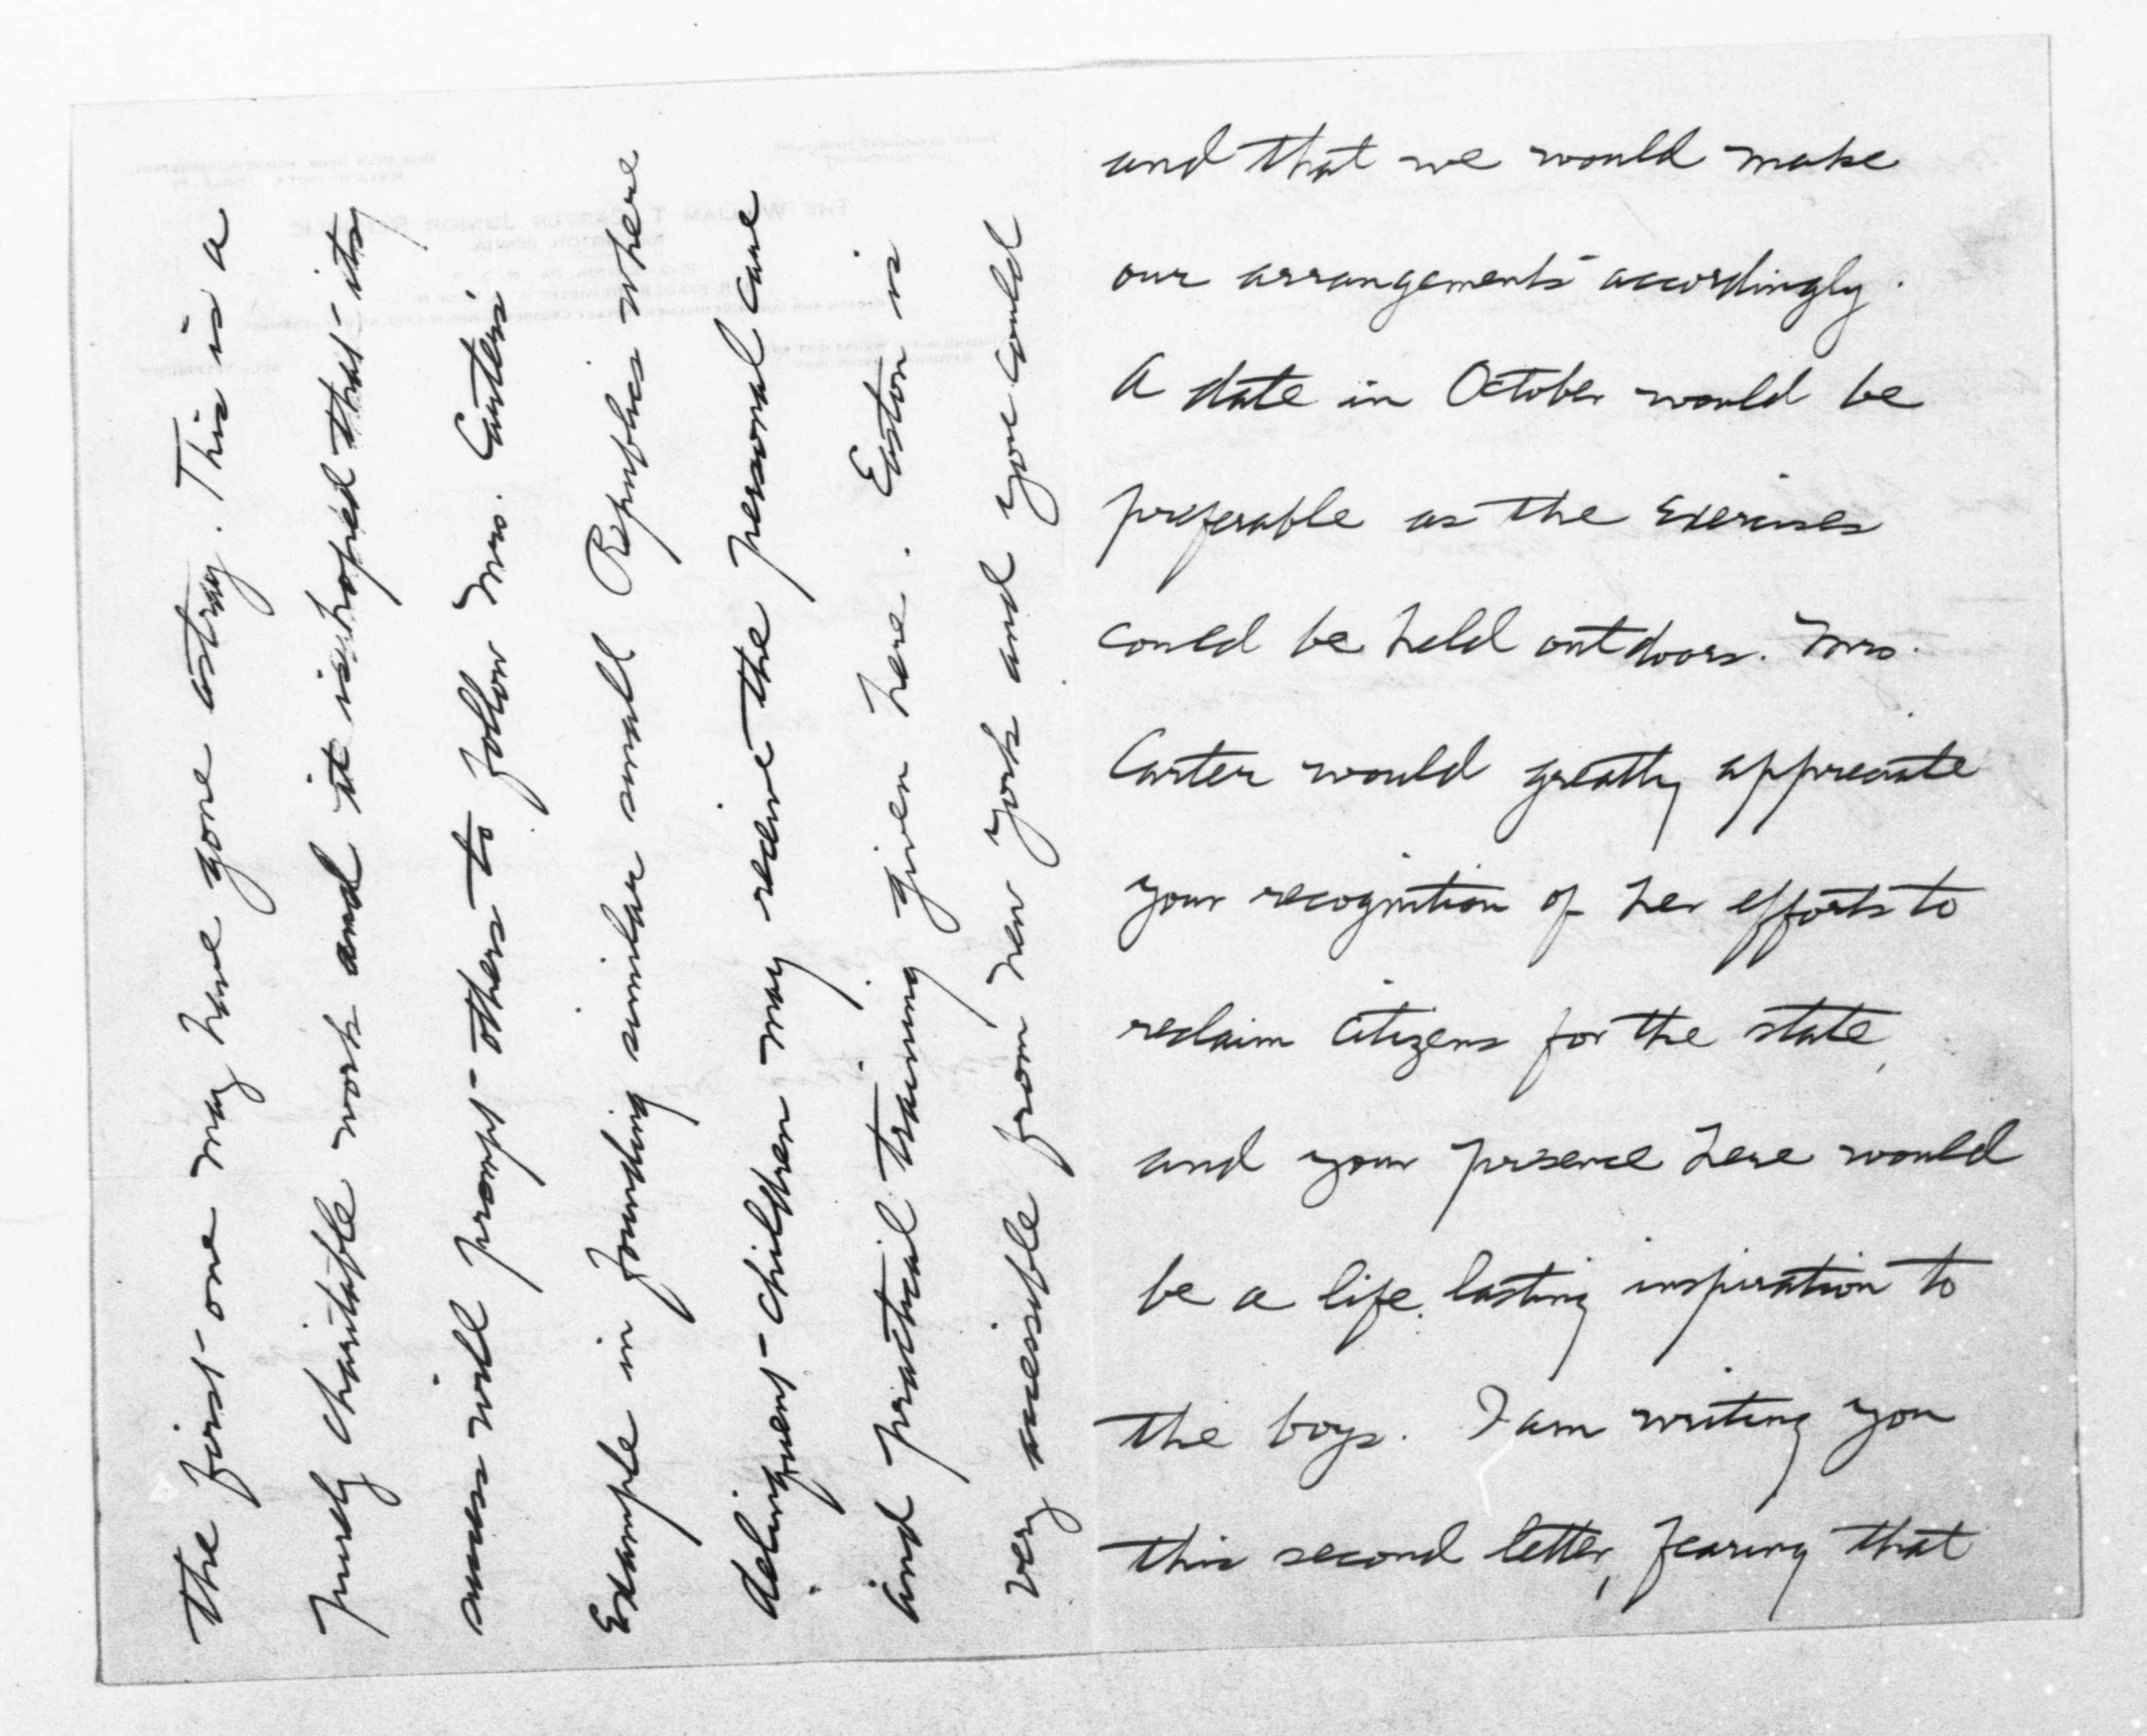 and that we would make
our arrangements accordingly.
A date in October would be
preferable as the Exercises
could be held outdoors. Mrs.
Carter would greatly appreciate
your recognition of her efforts to
reclaim citizens for the state,
and your presence here would
be a life lasting inspiration to
the boys. I am writing you
this second letter, fearing that
the first one may have gone astray. This is a
purely charitable work and it is hoped that its
success will prompt others to follow Mrs. Carter's
Example in founding similar small Republics where
delinquent children may receive the personal care
and practical training given here. Easton is
very accessible from New York and you could
THE WILLIAM T. CARTER JUNIOR REPUBLIC